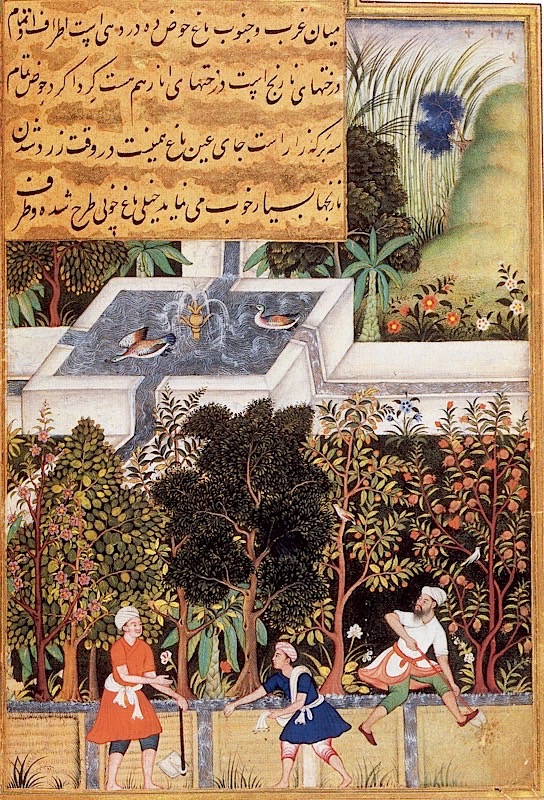 میان غرب و جنوب باغ حوض ده در دهی است اطراف و تمام
درختهای نارنج است درختهای انار هم هست گرداکرد حوض تمام
سه برکه زار است جای عین باغ همینست در وقت زرد شدن
نارنجها بسیار خوب می نماید خیلی باغ خوبی طرح شده و طرف